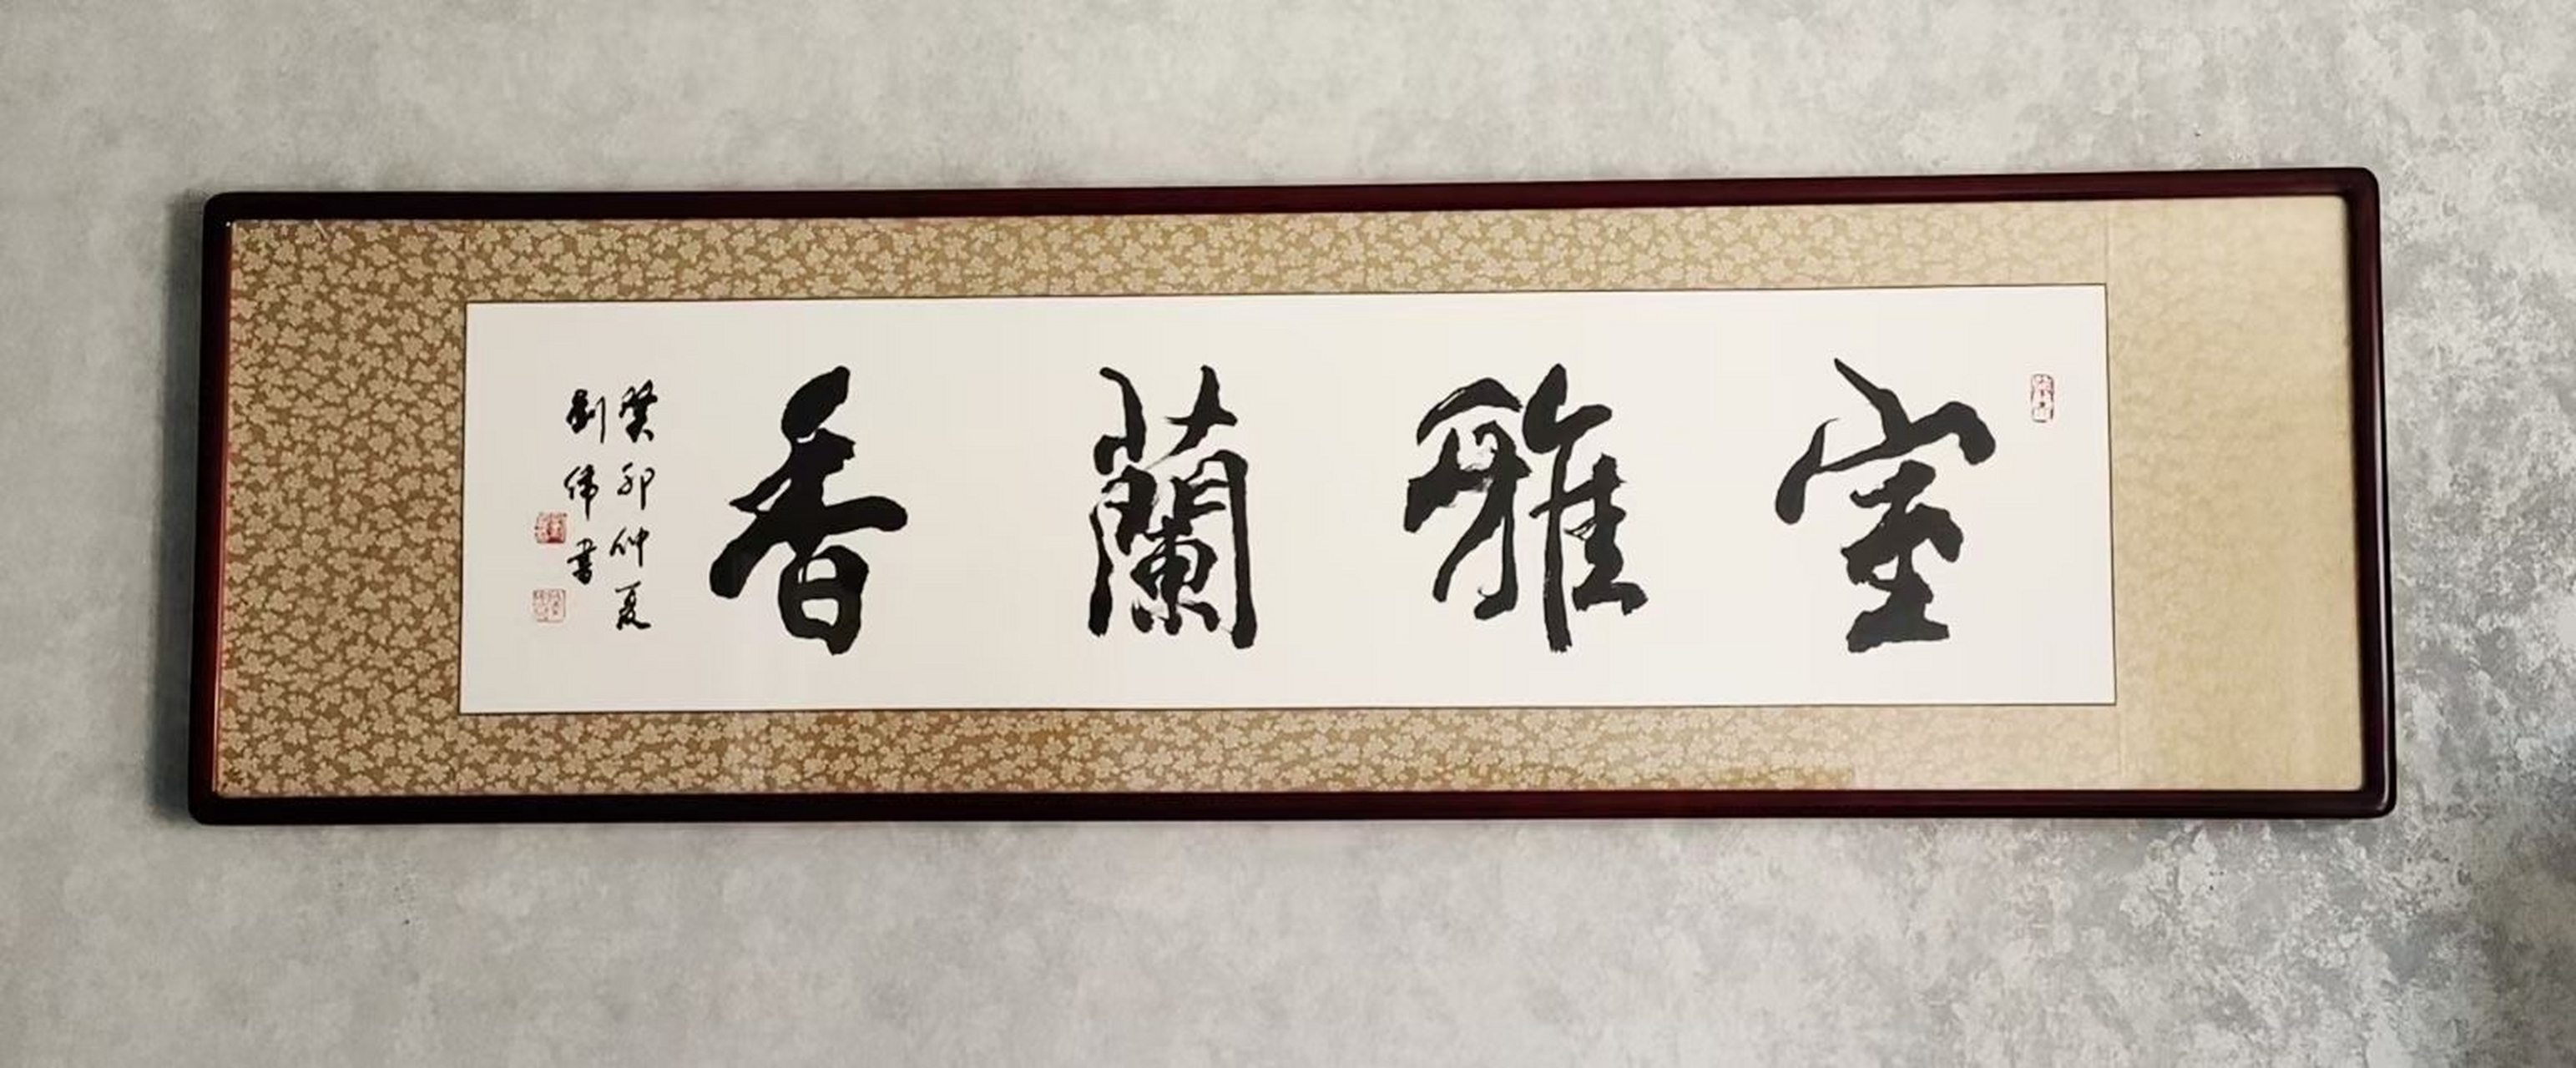 室雅蘭香
癸卯仲夏
劉偉書